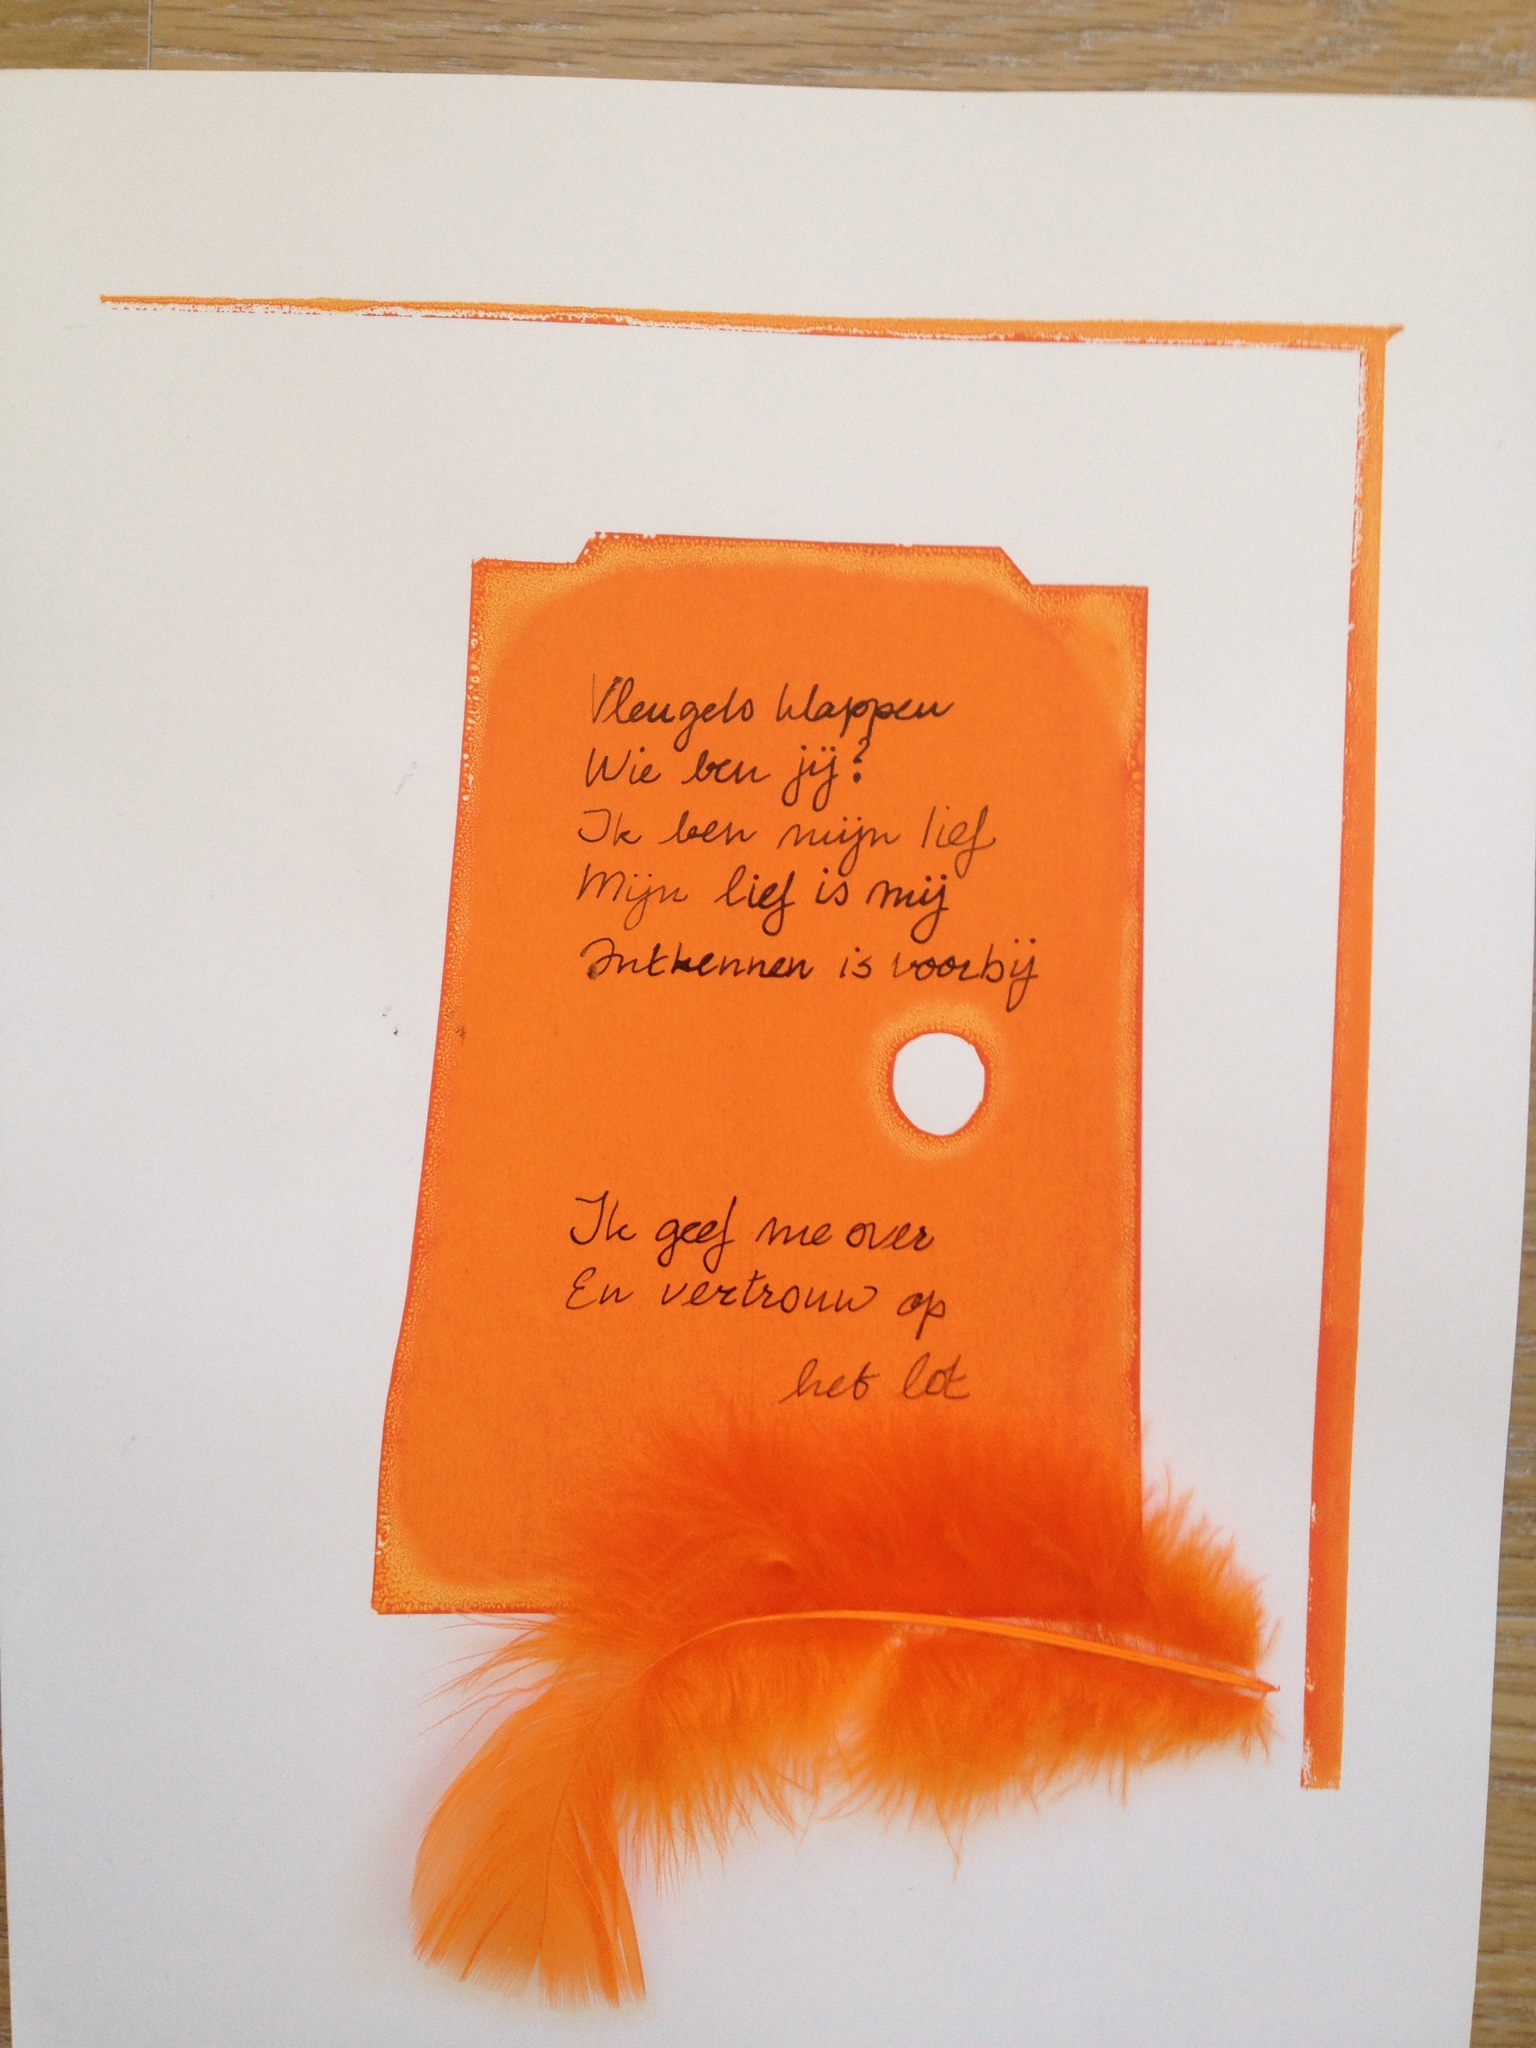 Vleugels klappen
Wie ben jij?
Ik ben mijn lief
Mijn lief is mij
Ontkennen is voorbij
Ik geef me over
En vertrouw op
het lot